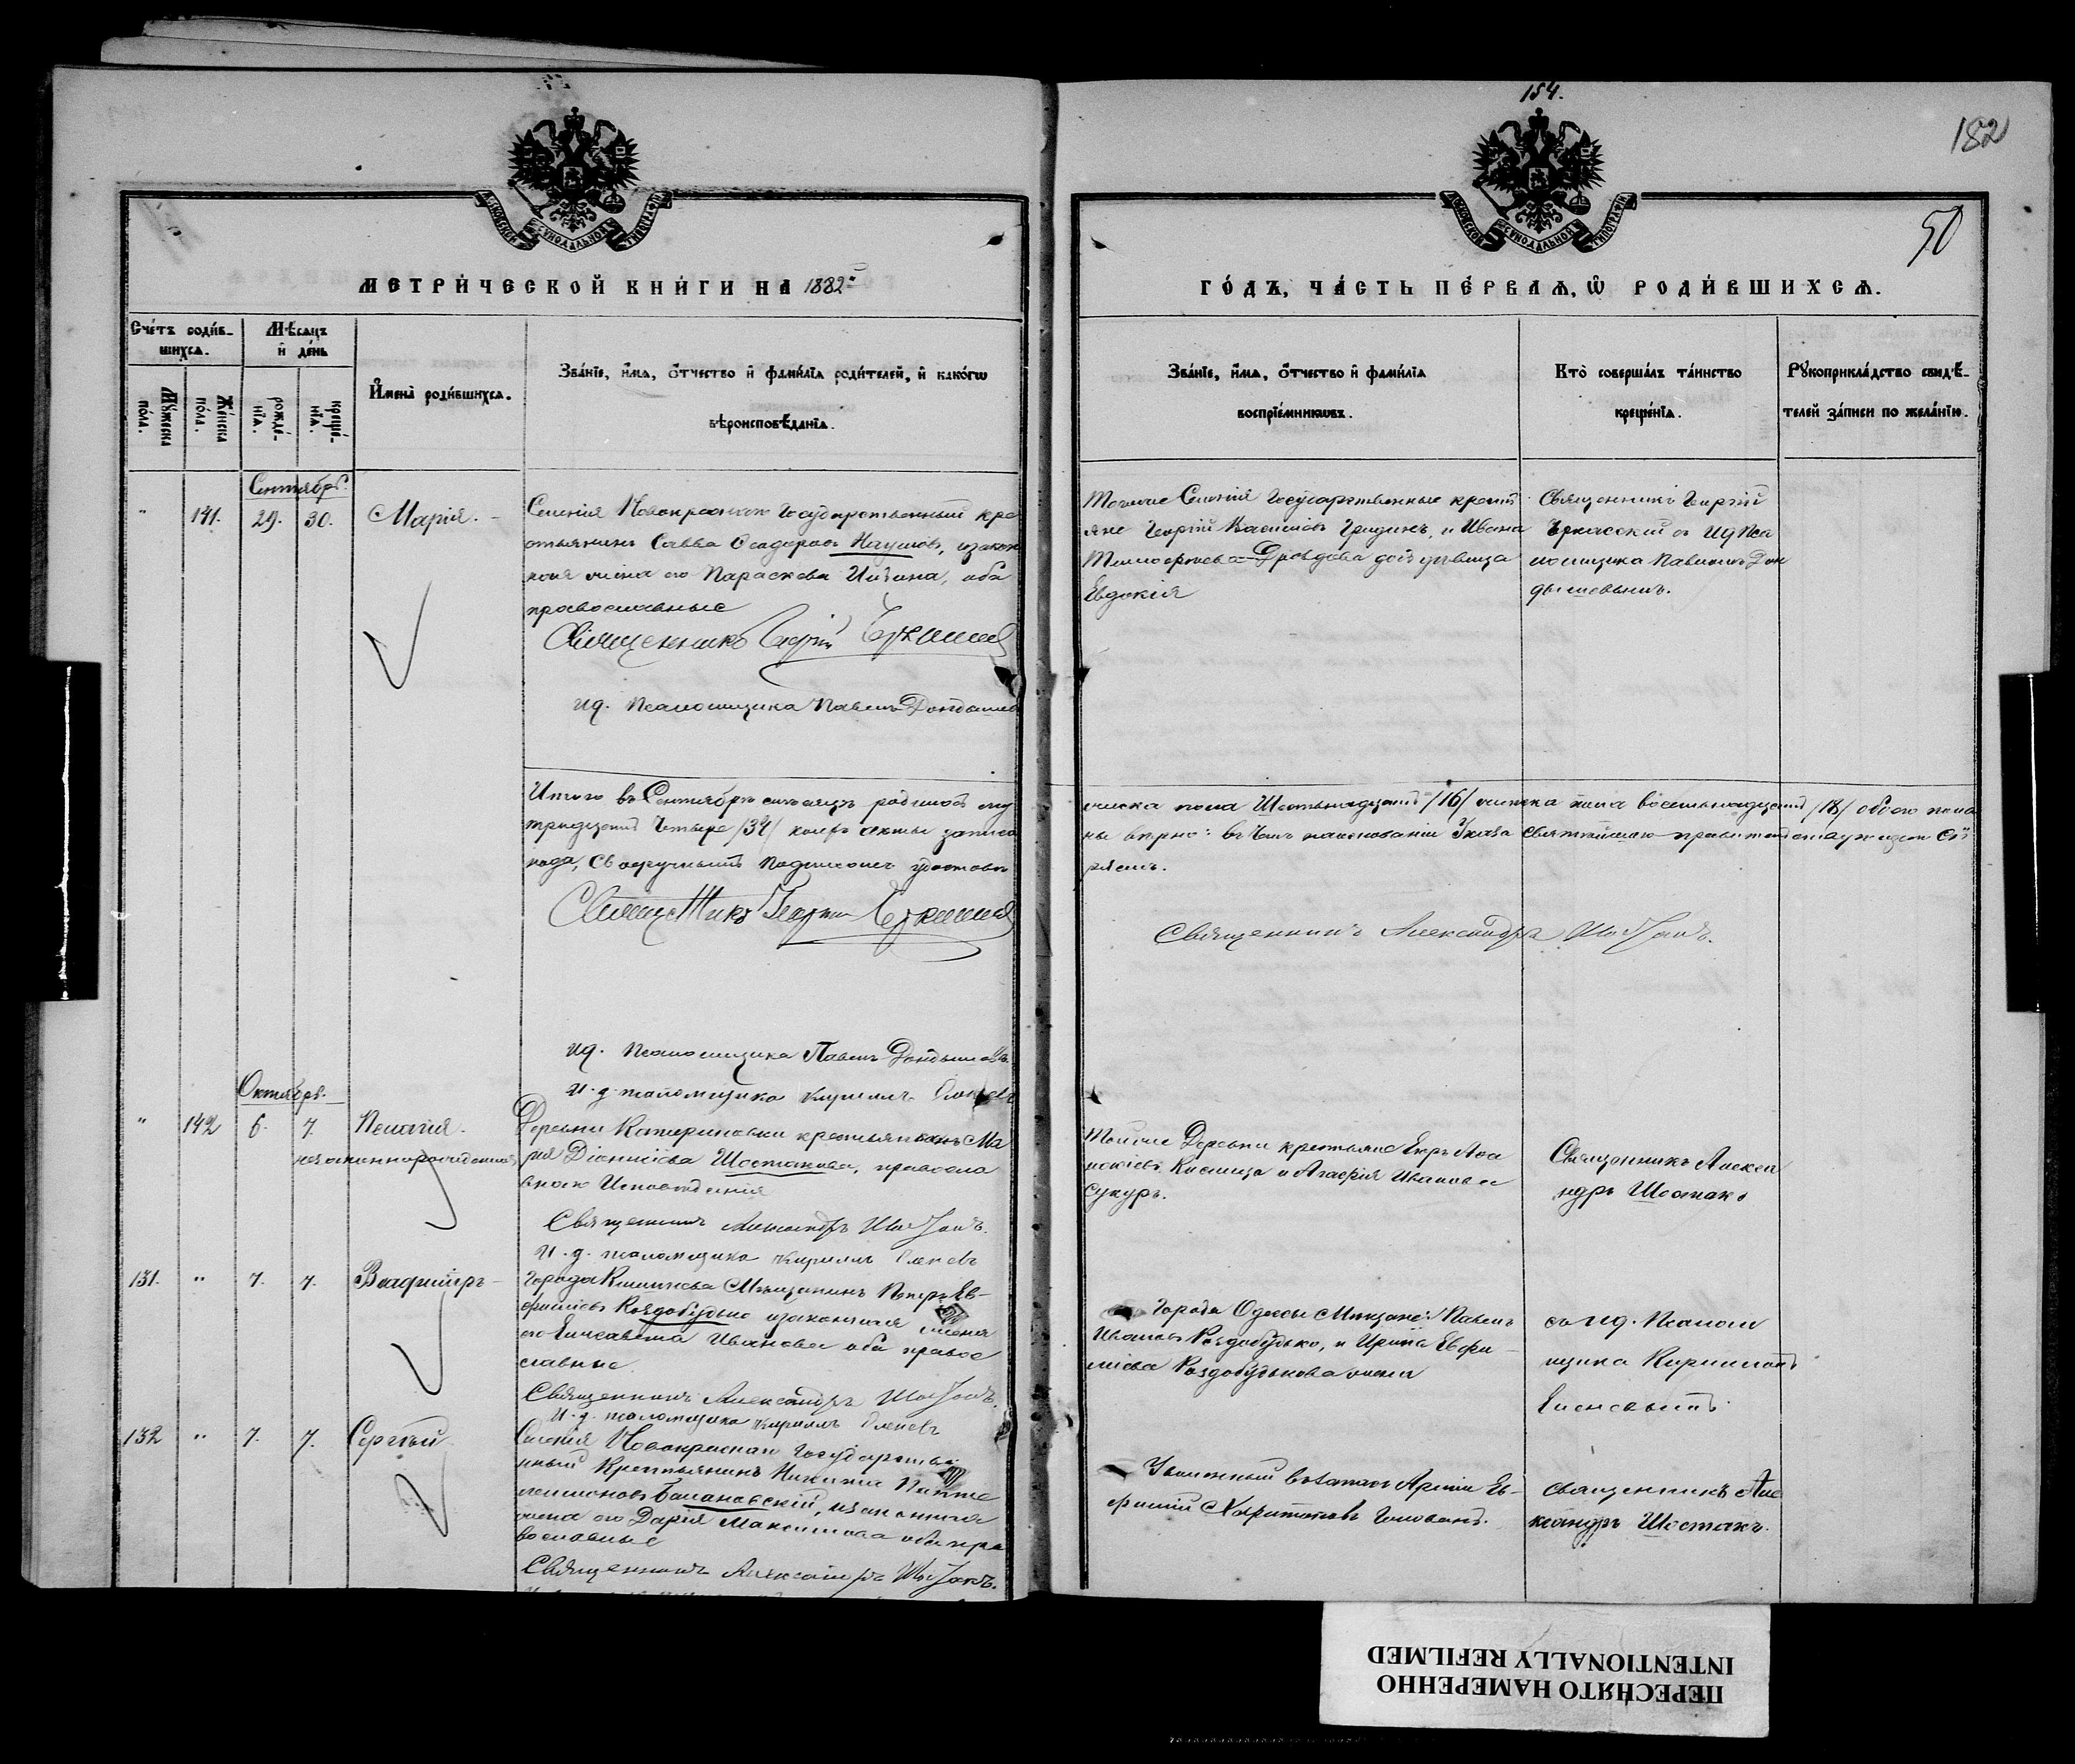 154.
182
50
МОСКОВСКОЙ СУНОДАЛЬНОЙ ТИПОГРАФІИ
МОСКОВСКОЙ СУНОДАЛЬНОЙ ТИПОГРАФІИ
МЕТРИ́ЧЕСКОЙ КНИ́ГИ НА 1882
ГО́ДЪ, ЧА́СТЬ ПЕ́РВАѦ, Ѡ РОДИ́ВШИХСѦ.
Сче́тъ роди́в-
шихсѧ.
Мꙋ́жеска по́ла.
Же́нска по́ла.
Мѣ́сѧцъ
и де́нь
рожде́-
нїѧ.
креще́-
нїѧ.
И́мена̀ роди́вшихсѧ.
Зва́нїе, и́мѧ, о́тчество и фами́лїѧ роди́телей, и како́гѡ
вѣроисповѣ́данїѧ.
Зва́нїе, и́мѧ, о́тчество и фами́лїѧ
воспрїе́мникѡвъ.
Кто̀ соверша́лъ та́инство
креще́нїѧ.
Рꙋкоприкла́дство свидѣ́-
телей за́писи по жела́нїю.
Сентябрь.
" 141. 29. 30. Марія.
Селенія Новокрасного Государственный кре
стьянинъ Савва Ѳеодоровъ Наумовъ, и закон
ная жена его Параскева Ивана, оба
православные
Священникъ Георгій
ид. Псаломщика Павелъ
Тогоже Селенія Государственные кресть
яне Георгій Васильевъ Гридинъ, и Ивана
Тимофеева Дроздова дочь девица
Евдокія
Священникъ Георгій
съ ИД Пса
ломщика Павломъ Дон
дышовымъ.
Итого въ Сентябрѣ мѣсяцѣ родилось му
жеска пола Шестьнадцать /16/ женска пола восемьнадцать /18/ обоего пола
тридцать Четыре /34/ коихъ акты записа
ны вѣрно: въ чемъ на основаніи Указа Святѣйшаго правительствующаго Си
нода, своеручнымъ подписомъ удостовѣ
ряемъ.
Священникъ Георгій
Священникъ Александръ Шостакъ.
ид. Псаломщика Павелъ
И.д. псаломщика Кириллъ
Октябрь.
" 142 6. 7. Пелагія.
незаконнорожденная
Деревни Катериновки крестьянская Ма
рія Діонисіева Шостакова, правосла
внаго Исповѣданія
Священникъ Александръ Шостакъ.
И.д. псаломщика Кириллъ
Тойже Деревни крестьяне
и Агафія Иванова
Сукуръ.
Священникъ Алекса
ндръ Шостакъ
131. " 7. 7. Владиміръ
Города Кишинева Мѣщанинъ Петръ Ев-
фиміевъ Роздобудько и законная жена
его Елисавета Иванова оба право
славные.
Священникъ Александръ Шостакъ.
И.д. псаломщика Кириллъ
Города Одессы Мѣщане: Павелъ
Ивановъ Роздобудько, и Ирина Евфи-
міева Роздобудькова жена
со ид. Псалом
щика Кирилломъ
132 " 7. 7. Сергѣй
Селенія Новокрасная Государстве
нный Крестьянинъ Никита Панте
леимоновъ Балановскій, и законная
жена его Дарія Максимова оба пра
вославные
Священникъ Александръ Шостакъ.
Уволенный въ запасъ Арміи Ев-
фимій Харитоновъ Голованъ.
Священникъ Але
ксандръ Шостакъ.
ПЕРЕСНЯТО НАМЕРЕННО
INTENTIONALLY REFILMED